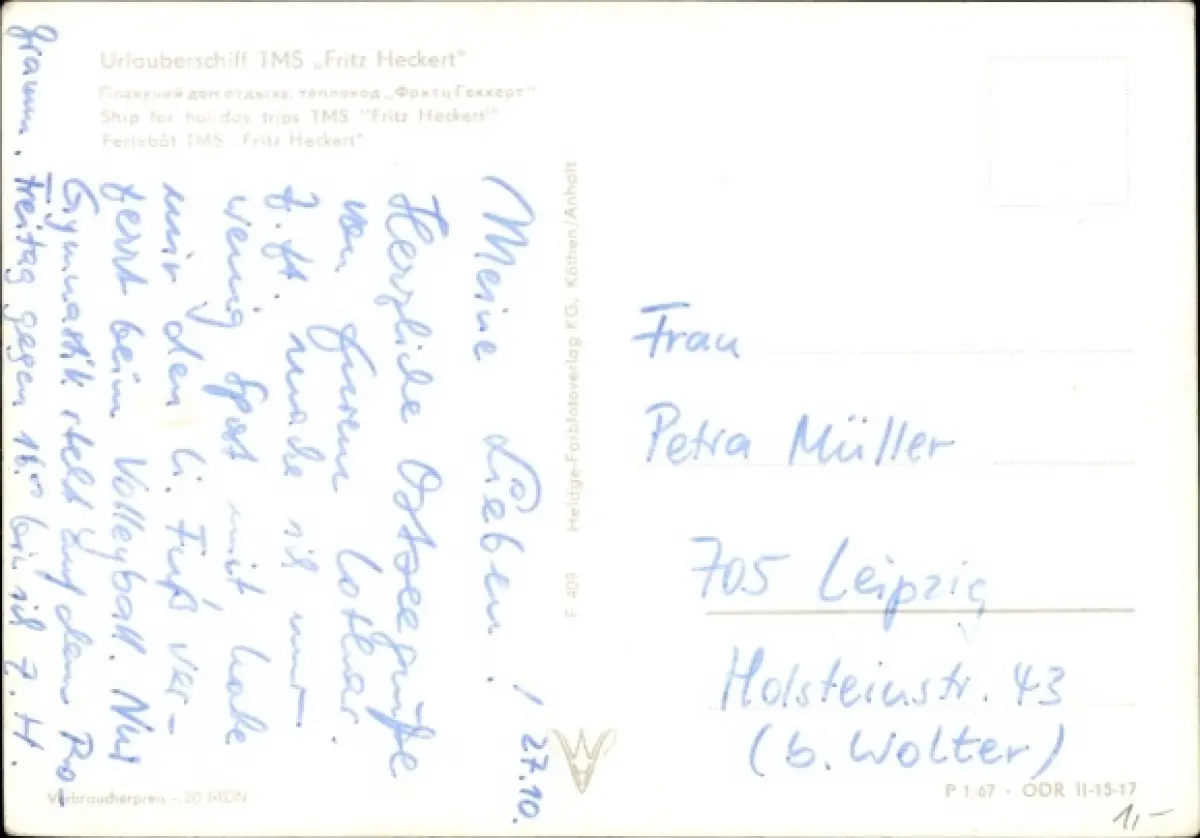 Urlauberschiff TMS „Fritz Heckert"
Плавучий дом отдыха, теплоход „Фритц Геккерт"
Ship for holiday trips TMS "Fritz Heckert"
Feriebåt TMS „Fritz Heckert"
Meine Lieben! 27.10.
Herzliche Ostseegrüße
von Eurem Lothar.
Z. Zt. mache ich nur
wenig Sport mit habe
mir den li. Fuß ver-
zerrt beim Volleyball. Nur
Gymnastik steht auf dem Pro-
gramm. Freitag gegen 16.00 bin ich z. H.
Heldge-Farbfotoverlag KG, Köthen/Anhalt
F 409
Frau
Petra Müller
705 Leipzig
Holsteinstr. 43
(b. Wolter)
Verbraucherpreis -,20 MDN
P 1/67 · ODR II-15-17
1,-